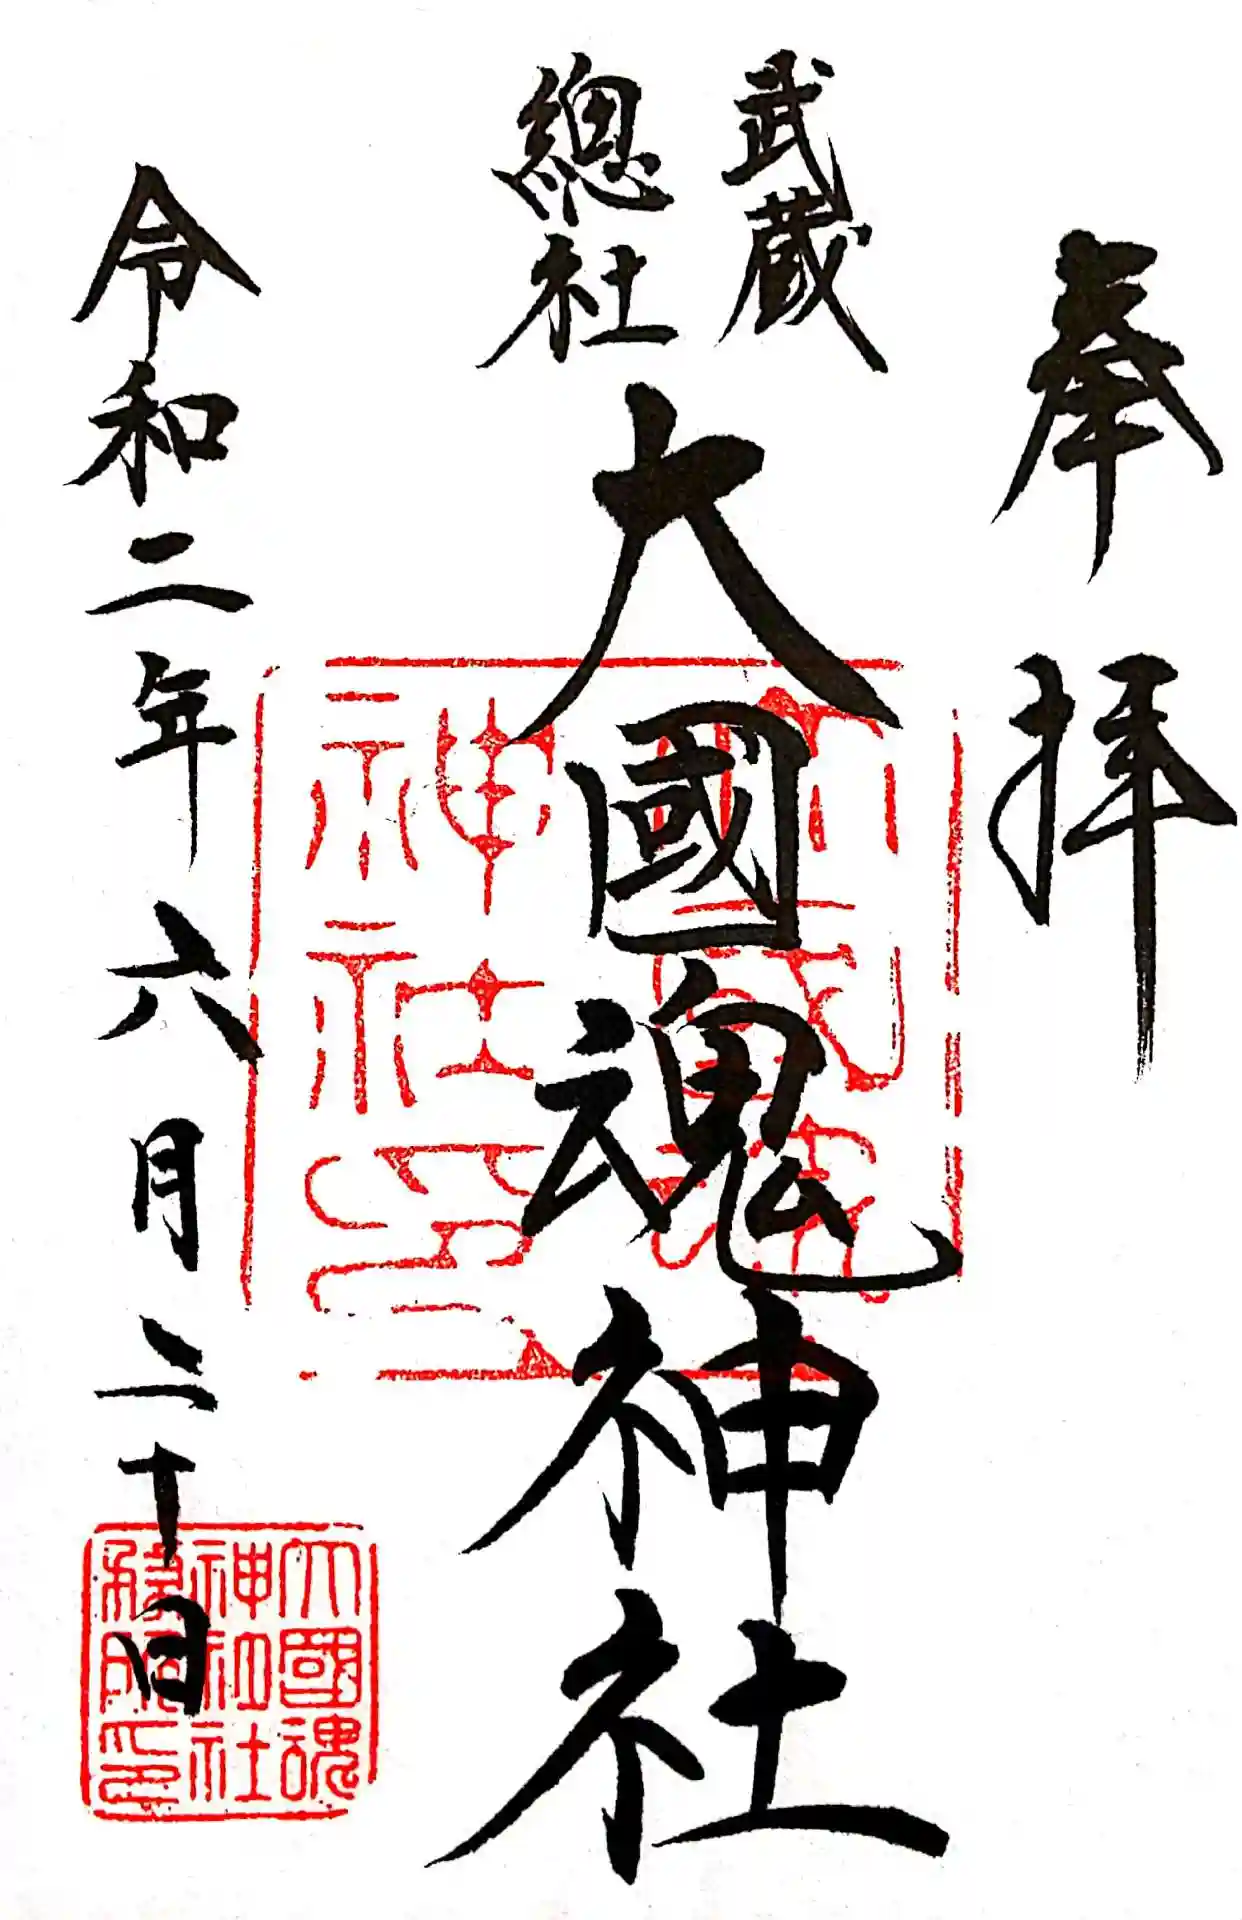 奉拝
武蔵
總社
大國魂神社
令和二年六月二十日
大國魂
神社社
務所印